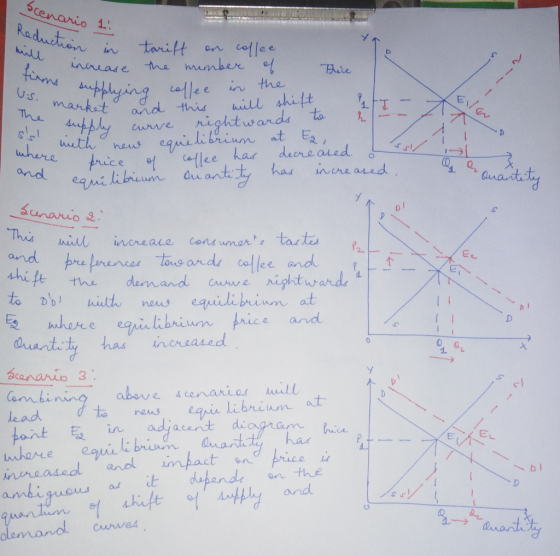 Scenario 1:
Reduction in tariff on coffee
will increase the number of
firms supplying coffee in the
U.S. market and this will shift
the supply curve rightwards to
S'S' with new equilibrium at E2,
where price of coffee has decreased
and equilibrium Quantity has increased.
Price
Y
D
S
S'
P1
P2
E1
E2
S
S'
D
O
Q1
Q2
X
Quantity
Scenario 2:
This will increase consumer's tastes
and preferences towards coffee and
shift the demand curve rightwards
to D'D' with new equilibrium at
E2 where equilibrium price and
Quantity has increased.
Y
D'
D
S
P2
P1
E2
E1
S
D'
D
O
Q1
Q2
X
Scenario 3:
Combining above scenarios will
lead to new equilibrium at
point E2 in adjacent diagram
where equilibrium Quantity has
increased and impact on price is
ambiguous as it depends on the
quantum of shift of supply and
demand curves.
Price
Y
D'
D
S
S'
P1
E1
E2
S
S'
D'
D
O
Q1
Q2
X
Quantity